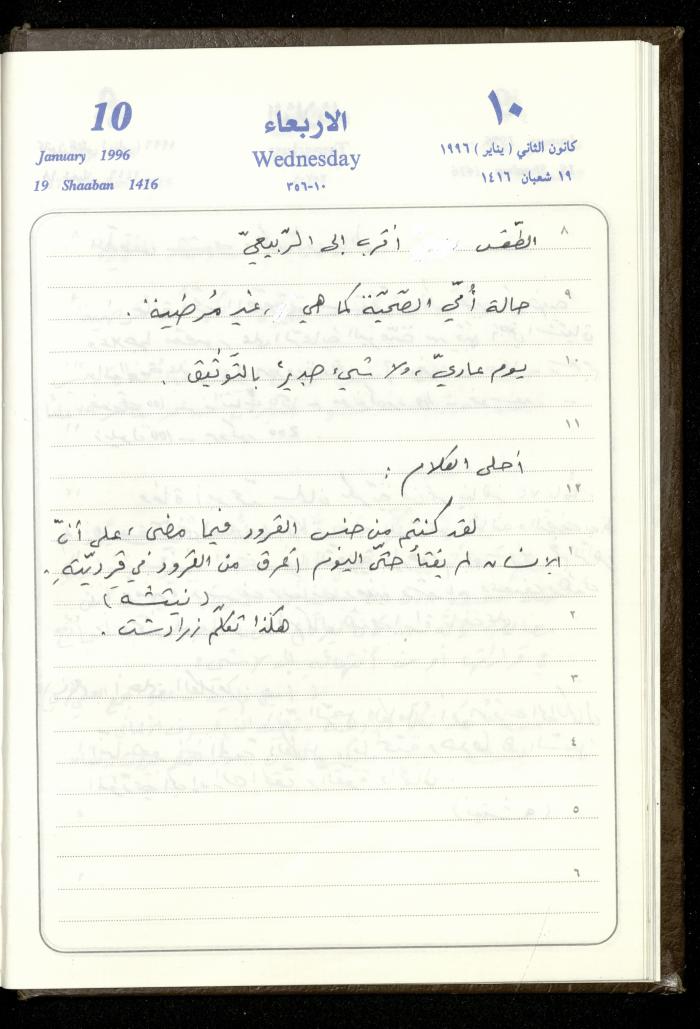 10
January 1996
19 Shaaban 1416
الاربعاء
Wednesday
١٠-٣٥٦
١٠
كانون الثاني ( يناير ) ١٩٩٦
١٩ شعبان ١٤١٦
٨ الطّقس أقرب إلى الرّبيعيّ
٩ حالة أُمّي الصّحيّة كما هي، غير مُرضية .
١٠ يوم عاديّ، ولا شيء جديرٌ بالتَوثيق .
١١
أحلى الكلام :
١٢
لقد كنتم من جنس القرود فيما مضى، على أنّ
١ الإنسان لم يفتأ حتّى اليوم أعرق من القرود في قرديّتهِ .
( نيتشه )
٢ هكذا تكلّم زرادشت .
٣
٤
٥
٦